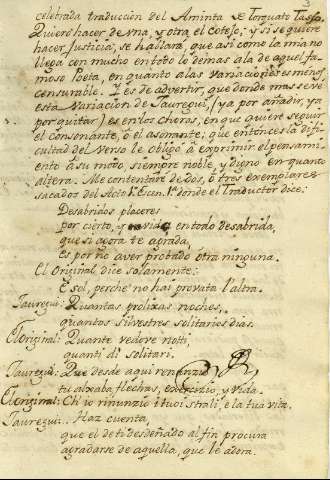 3
celebrada traducción del Aminta de Torquato Tasso.
Quiero hacer de vna, y otra el Cotejo; y si se quiere
hacer Justicia, se hallará, que asi como la mia no
llega con mucho en todo lo demas à la de aquel fa-
moso Poeta, en quanto a las variaciones es menos
censurable. Y es de advertir, que donde mas se vé
esta variacion de Jauregui, (ya por añadir, ya
por quitar) es en los choros, en que quiere seguir
el consonante, ò el asonante; que entonces la difi-
cultad del verso le obligó à exprimir el pensami-
ento à su modo, siempre noble, y digno en quanto
altera. Me contentaré de dos, ò tres exemplares
sacados del Acto 1º Scen. 1ª donde el Traductor dice:
Desabridos placeres
por cierto, y vida en todo desabrida,
que si agora te agrada,
es por no aver probado otra ninguna.
El Original dice solamente:
È sol, perche non hai provata l'altra.
Jauregui: Quantas prolixas noches,
quantos silvestres solitarios dias.
El Original: Quante vedove notti,
quanti dì solitari.
Jauregui: Que desde aqui renunzio
tu aljaba, flechas, exercizio, y vida.
El Original: Ch'io rinunzio i tuoi strali, e la tua vita.
Jauregui: Haz cuenta,
que el de ti desdeñado al fin procura
agradarse de aquella, que le adora.